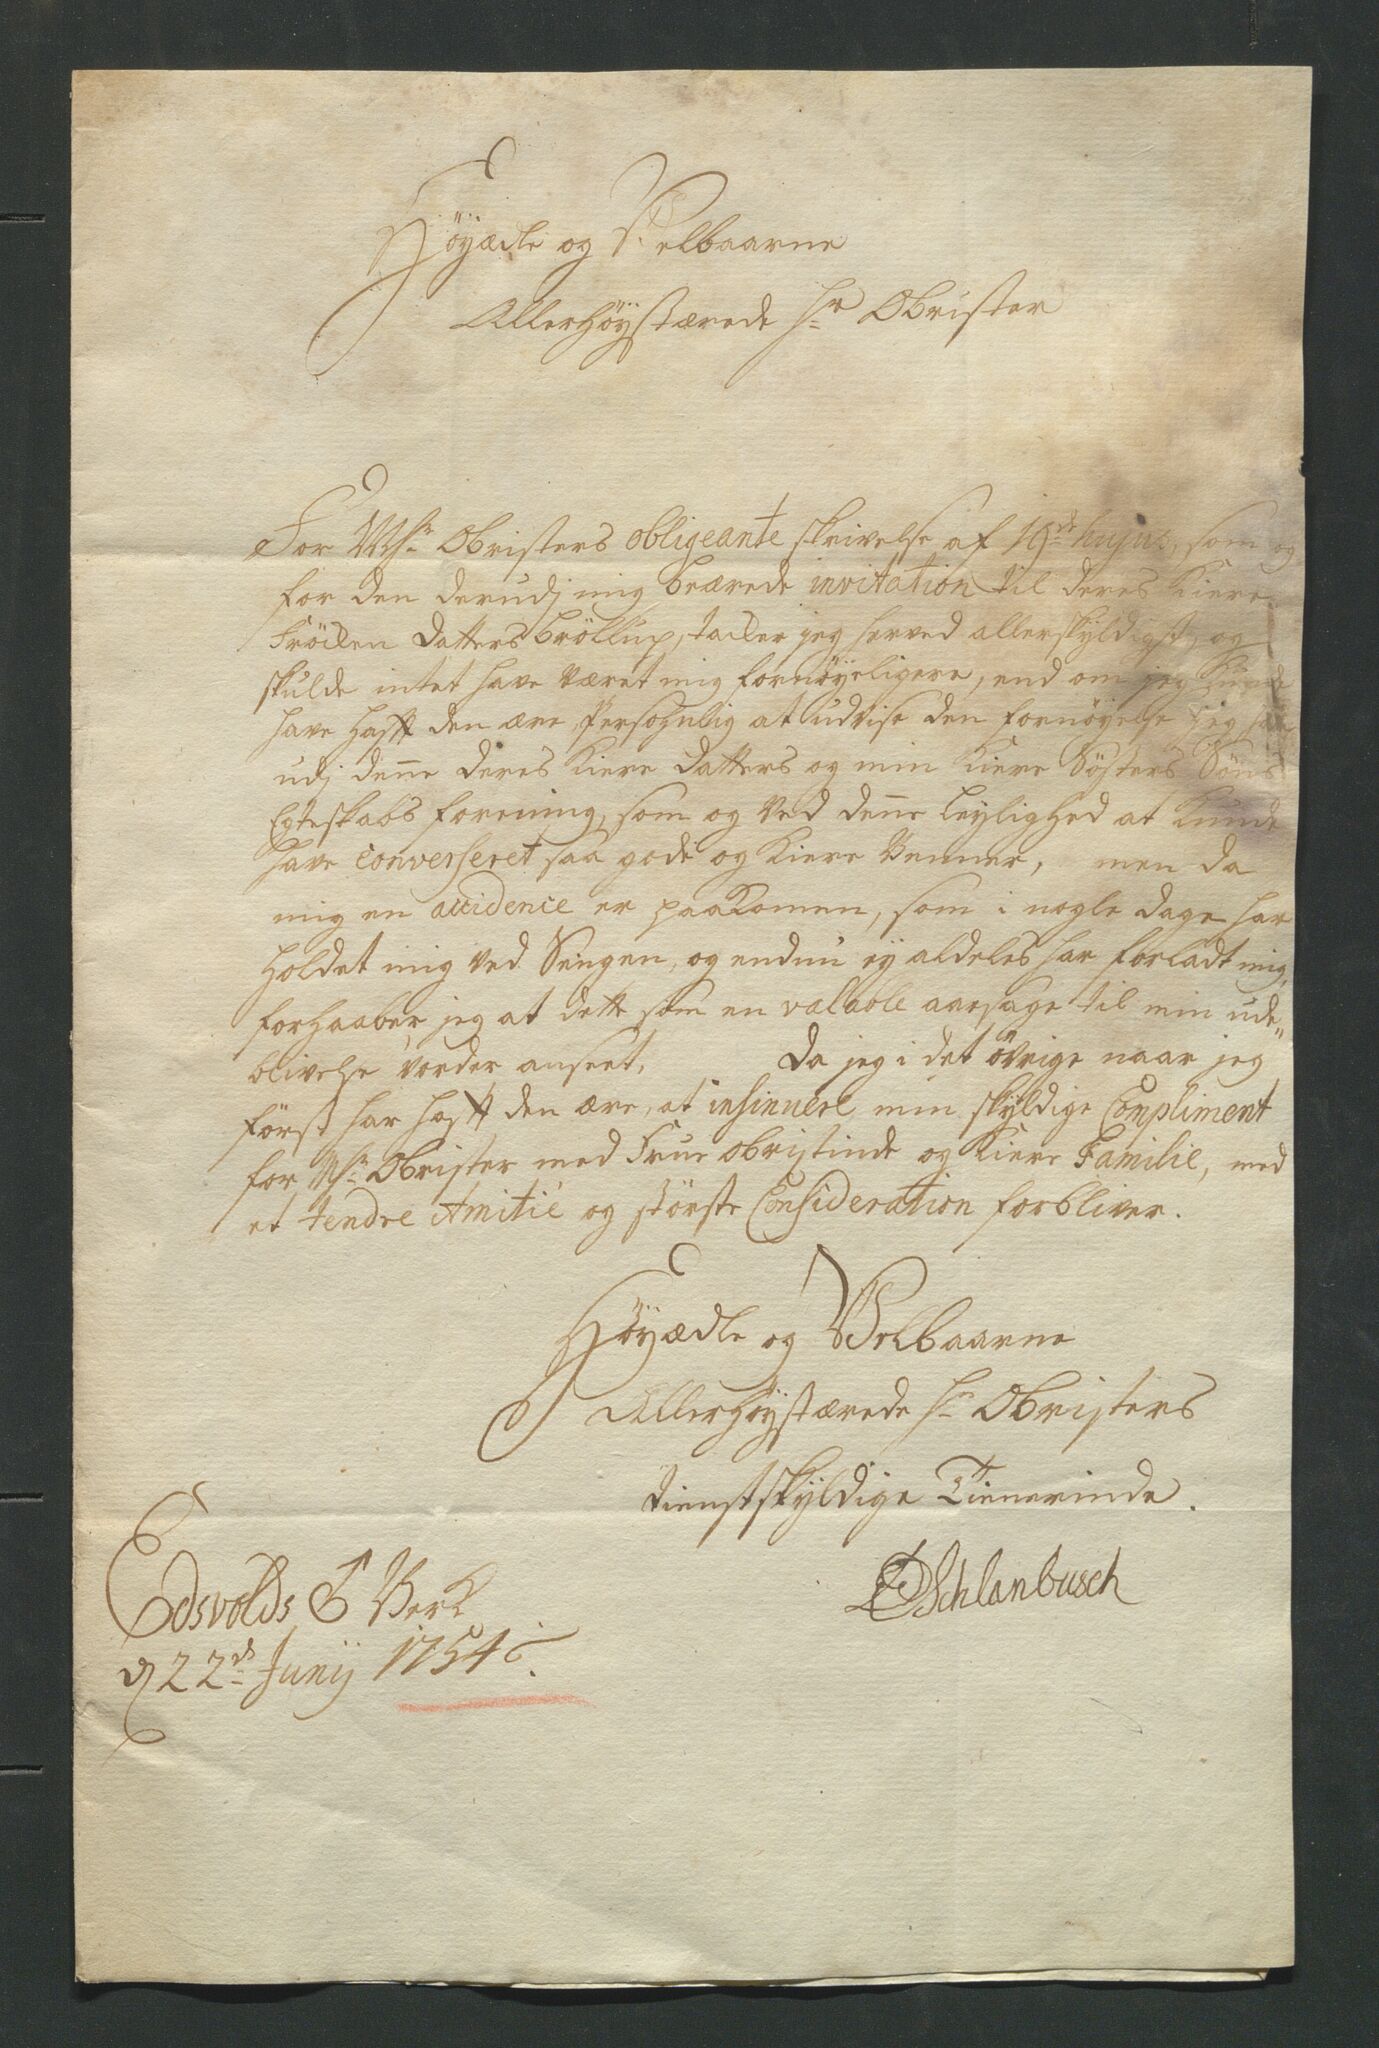 Höyædle og Velbaarne
Allerhöystærede Hr Obrister
For MHr Obristers obligeante skrivelse af 19de hujus, som og
for den derudj mig beærede invitation til deres Kiere
Fröiken Datters Bröllup, tacker jeg herved allerskyldigst, og
skulde intet have været mig fornöyeligere, end om jeg Kunde
have hafft den ære Persohnlig at udvise den fornöyelse jeg har
udj denne deres Kiere Datters og min Kiere Sösters Söns
Egteskabs forening, som og ved denne leylighed at Kunde
have converseret saa gode og Kiere Venner, men da
mig en accidence er paakomen, som i nogle dage har
holdet mig ved Sengen, og endnu ey aldeles har forladt mig,
forhaaber jeg at dette som en valable aarsage til min ude„
blivelse vorder anseet, Da jeg i det övrige naar jeg
först har hafft den ære, at insinuere min skyldige Compliment
for MHr Obrister med Frue Obristinde og Kiere Familie, med
et tendre Amitié og störste Consideration forbliver.
Höyædle og Velbaarne
Allerhöystærede Hr Obristers
tienstskyldige Tienerinde.
Schlanbusch
Edsvolds ♂ Verk
d 22de Junij 1754